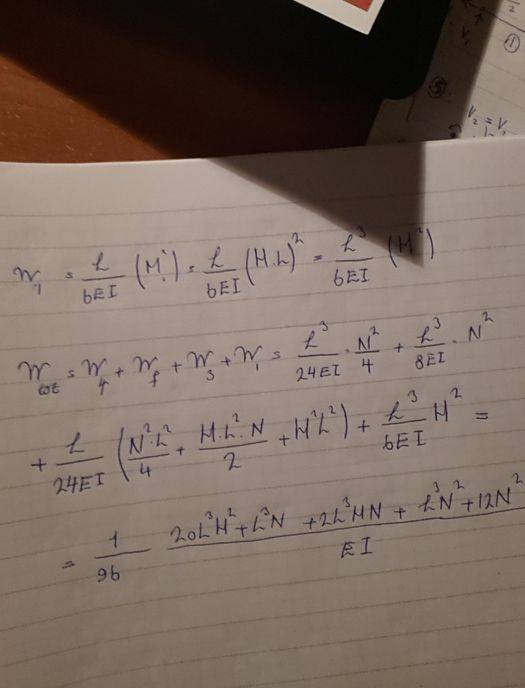 ①
⑤
V₂ = V₁
W₁ = L/6EI (M₁²) = L/6EI (H.L)² = L³/6EI (H²)
W_tot = W₄ + W_f + W₃ + W₁ = L³/24EI · N²/4 + L³/8EI · N²
+ L/24EI (N²·L²/4 + H.L².N/2 + H²L²) + L³/6EI H² =
= 1/96 (20L³H² + L³N + 2L³HN + L³N² + 12N²)/EI